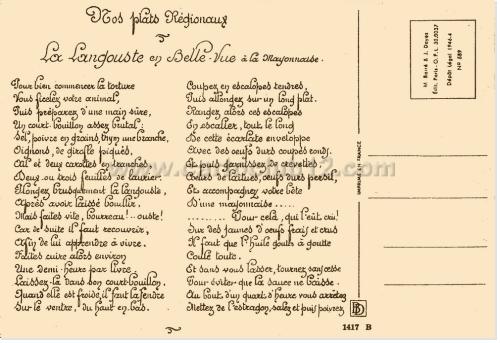 Nos plats Régionaux
La Langouste en Belle-Vue à la Mayonnaise.
Pour bien commencer la torture
Vous ficelez votre animal,
Puis préparez d'une main sûre,
Un court-bouillon assez brutal.
Sel, poivre en grains, thym une branche,
Oignons, de girofle piqués,
Ail et deux carottes en tranches,
Deux ou trois feuilles de laurier.
Plongez brusquement la langouste,
Après avoir laissé bouillir.
Mais faites vite, bourreau!.. ouste!
Car de suite il faut recouvrir,
Afin de lui apprendre à vivre.
Faites cuire alors environ
Une demi-heure par livre
Laissez-là dans son court-bouillon.
Quand elle est froide, il faut la fendre
Sur le ventre, du haut en bas.
Coupez en escalopes tendres,
Puis allongez sur un long plat.
Rangez alors ces escalopes
En escalier, tout le long
De cette écarlate enveloppe
Avec des œufs durs coupés rond.
Et puis garnissez de crevettes,
Cœurs de laitues, œufs durs, persil,
Et accompagnez votre bête
D'une mayonnaise.....
......... Pour cela, qui l'eût cru!
Sur des jaunes d'œufs frais et crus
Il faut que l'huile goutte à goutte
Coule toute.
Et sans vous lasser, tournez sans cesse
Pour éviter que la sauce ne baisse.
Au bout d'un quart d'heure vous arrêtez
Mettez de l'estragon, salez et puis poivrez,
1417 B
BD
IMPRIMÉ EN FRANCE
M. Barré & J. Dayez
Edit. Paris - O.P.L. 30.0037
Dépôt Légal 1946-4
N° 589